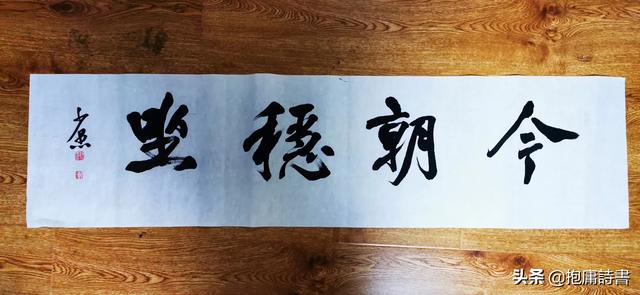 今朝穩坐
头条 @抱庸詩書